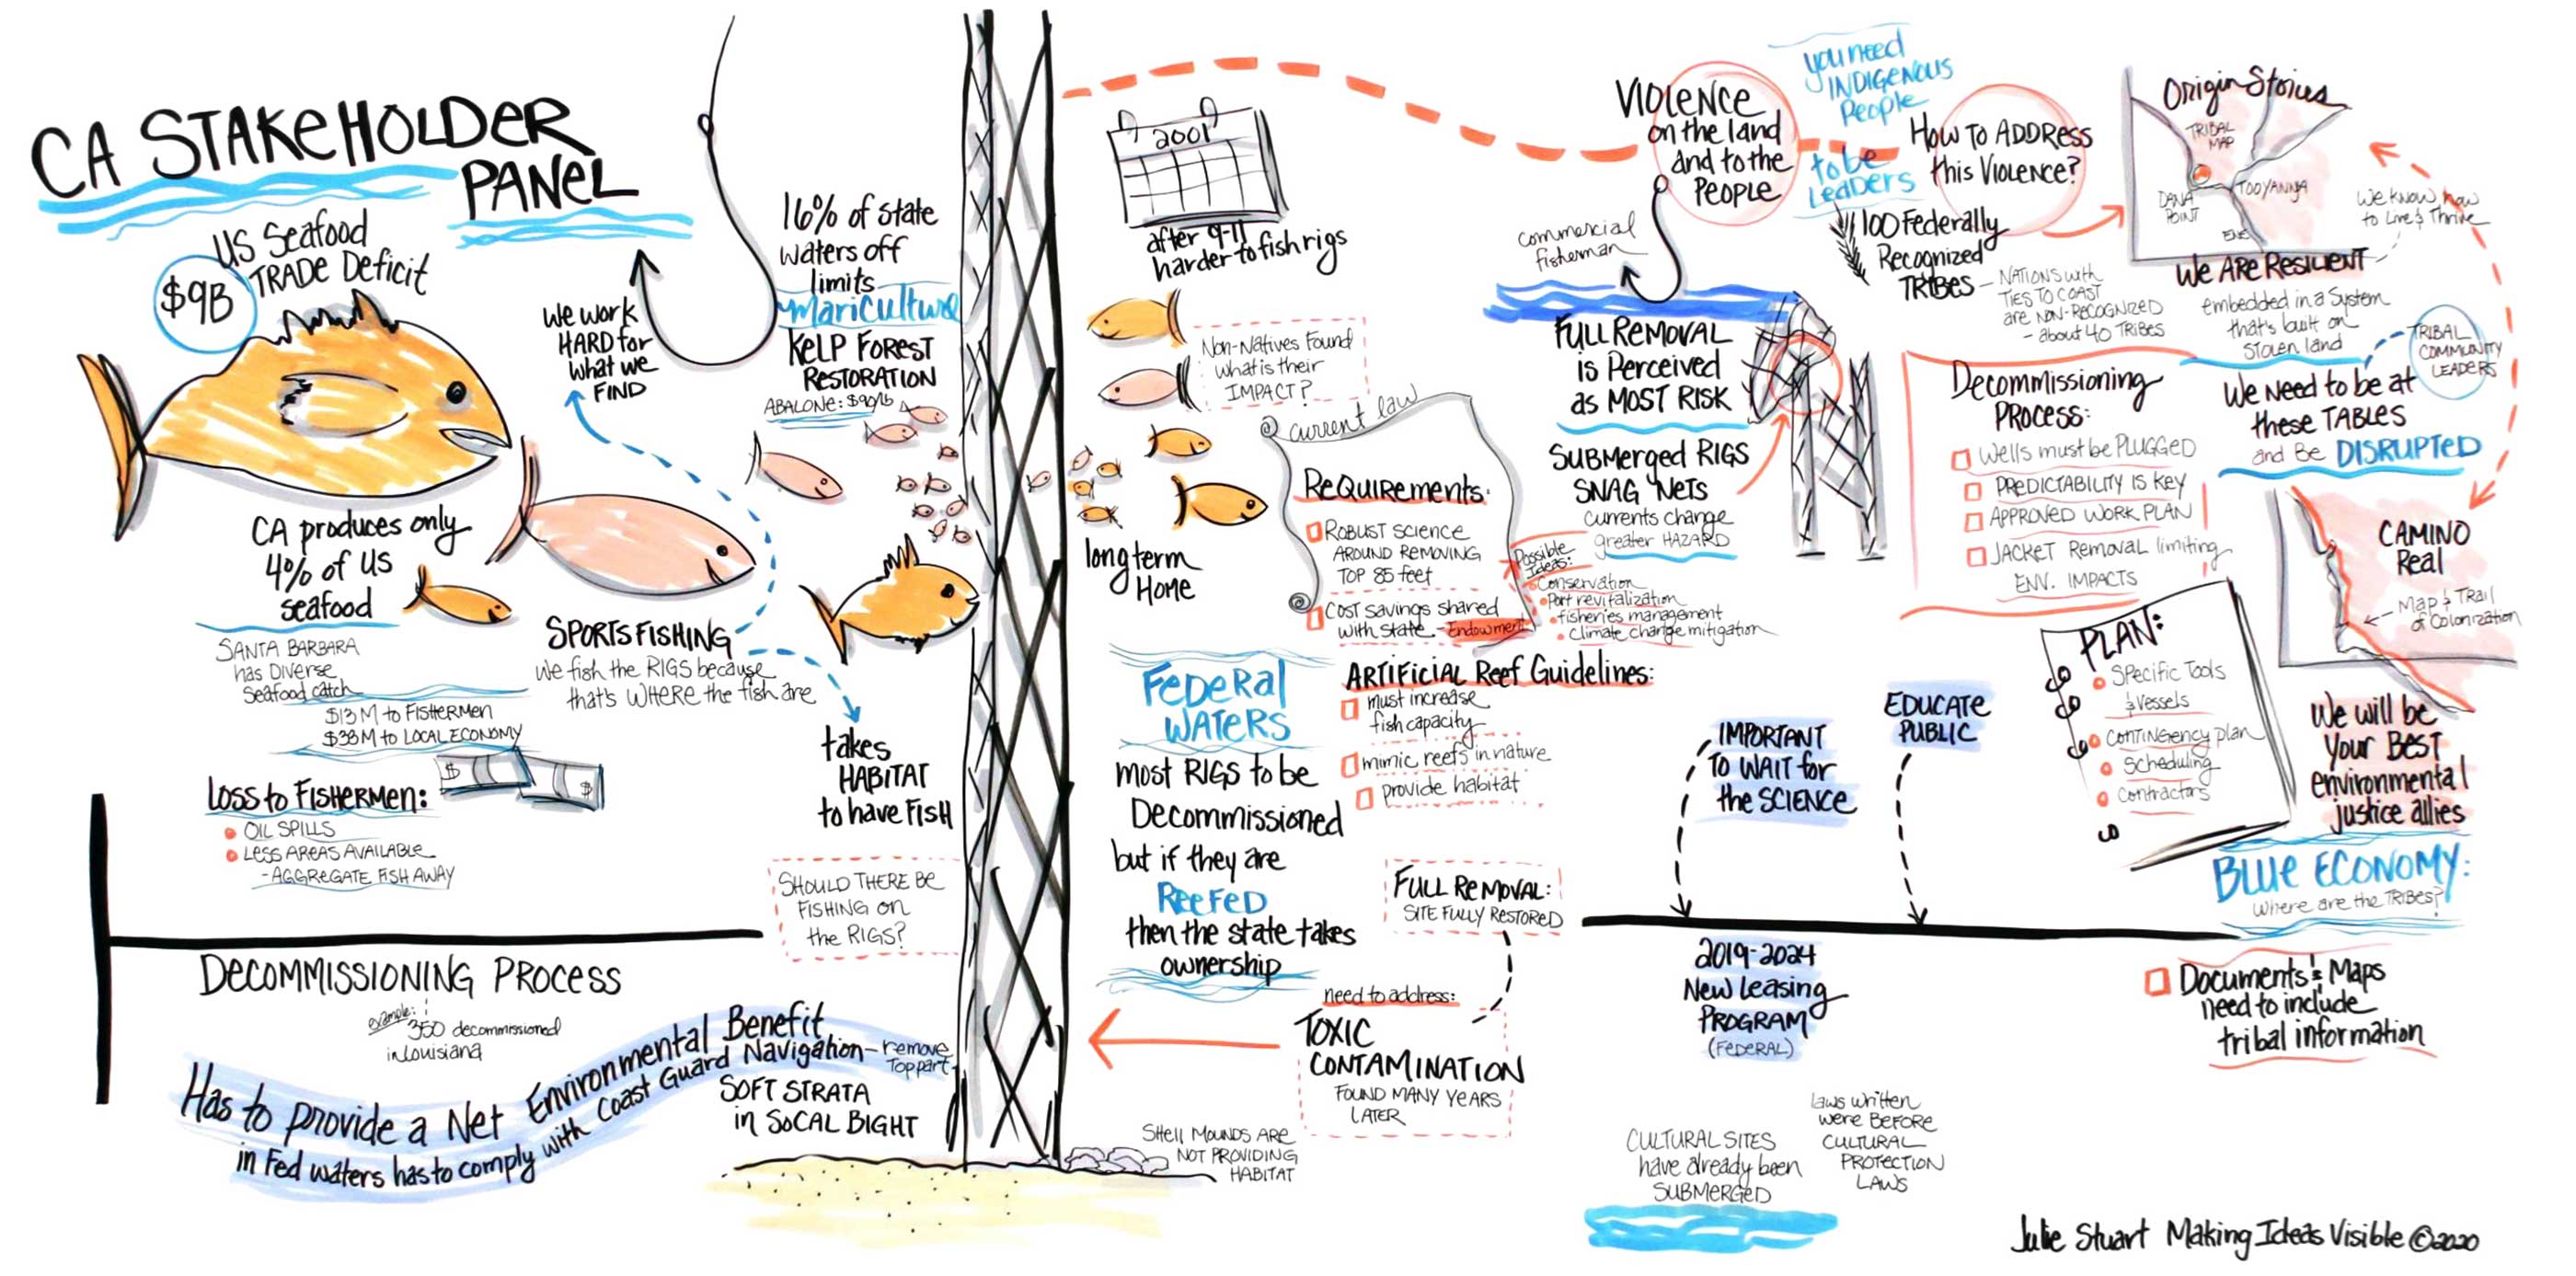 CA STAKEHOLDER
PANEL
US Seafood
TRADE Deficit
$9B
CA produces only
4% of US
seafood
SANTA BARBARA
has DIVERSE
Seafood catch
$13M to FISHERMEN
$38M to LOCAL ECONOMY
$
$
LOSS to FISHERMEN:
OIL SPILLS
LESS AREAS AVAILABLE
-AGGREGATE FISH AWAY
we work
HARD for
what we
FIND
SPORTSFISHING
we fish the RIGS because
that's WHERE the fish are
takes
HABITAT
to have FISH
16% of state
waters off
limits
mariculture
KELP FOREST
RESTORATION
ABALONE: $90/lb
SHOULD THERE BE
FISHING on
the RIGS?
DECOMMISSIONING PROCESS
example:
350 decommissioned
in Louisiana
Has to provide a Net Environmental Benefit
in Fed waters has to comply with Coast Guard Navigation - remove
Top part
SOFT STRATA
in SOCAL BIGHT
2001
after 9-11
harder to fish rigs
Non-Natives Found
what is their
IMPACT?
long term
Home
current law
REQUIREMENTS:
ROBUST SCIENCE
AROUND REMOVING
TOP 85 feet
COST savings shared
with state - Endowment
Possible
Ideas:
Conservation
Port revitalization
fisheries management
Climate change mitigation
FEDERAL
WATERS
most RIGS to be
Decommissioned
but if they are
REEFED
then the state takes
ownership
ARTIFICIAL Reef Guidelines:
must increase
fish capacity
mimic reefs in nature
provide habitat
FULL REMOVAL:
SITE FULLY RESTORED
need to address:
TOXIC
CONTAMINATION
FOUND MANY YEARS
LATER
SHELL MOUNDS ARE
NOT PROVIDING
HABITAT
VIOLENCE
on the land
and to the
PEOPLE
you need
INDIGENOUS
People
to be
LEADERS
HOW TO ADDRESS
this VIOLENCE?
commercial
fisherman
FULL REMOVAL
is Perceived
as MOST RISK
SUBMERGED RIGS
SNAG NETS
currents change
greater HAZARD
100 Federally
Recognized
TRIBES - NATIONS with
TIES TO COAST
are NON-RECOGNIZED
- about 40 TRIBES
Origin Stories
TRIBAL
MAP
DANA
POINT
TOOYANNA
We know how
to Live & Thrive
WE ARE RESILIENT
embedded in a System
that's built on
Stolen land
TRIBAL
COMMUNITY
LEADERS
We NEED to be at
these TABLES
and Be DISRUPTED
Decommissioning
PROCESS:
Wells must be PLUGGED
PREDICTABILITY is key
APPROVED WORK PLAN
JACKET Removal limiting
ENV. IMPACTS
PLAN:
Specific Tools
& Vessels
Contingency plan
Scheduling
Contractors
CAMINO
Real
Map & Trail
of Colonization
We will be
Your BEST
environmental
justice allies
BLUE ECONOMY:
Where are the TRIBES?
IMPORTANT
TO WAIT for
the SCIENCE
EDUCATE
PUBLIC
2019-2024
New Leasing
PROGRAM
(FEDERAL)
Documents & Maps
need to include
tribal information
CULTURAL SITES
have already been
SUBMERGED
laws written
were BEFORE
CULTURAL
PROTECTION
LAWS
Julie Stuart Making Ideas Visible ©2020